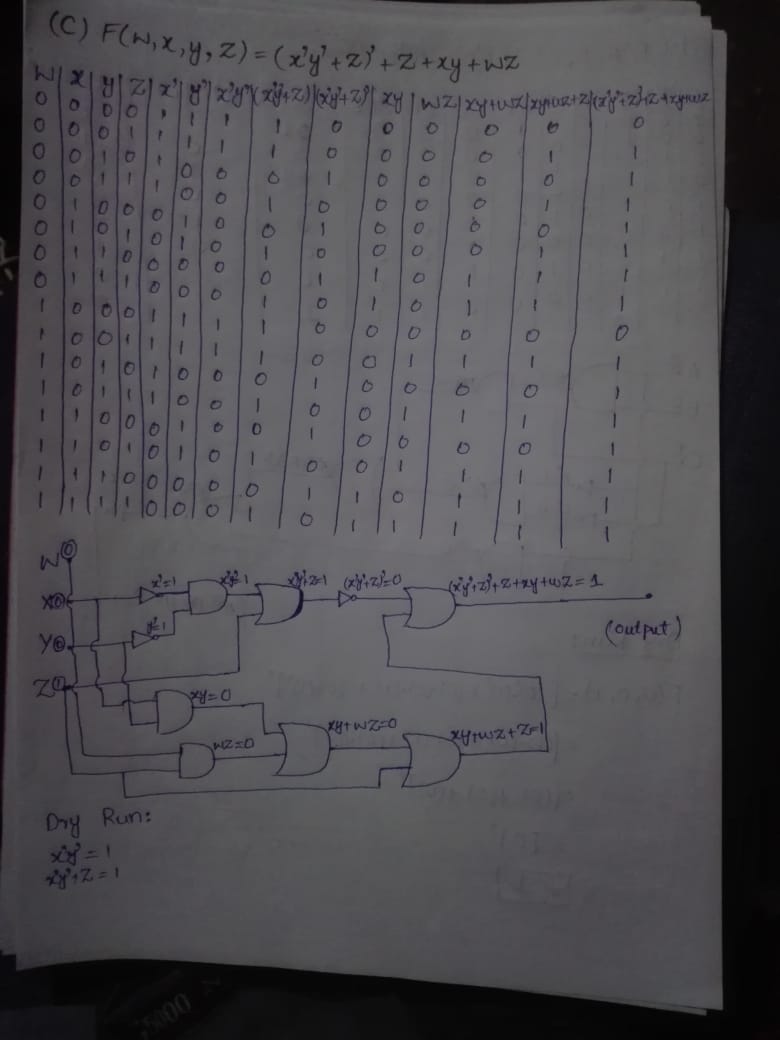 (C) F(W,x,y,z) = (x'y'+z)'+z+xy+wz
W | x | y | z | x' | y' | x'y' | (x'y'+z) | (x'y'+z)' | xy | wz | xy+wz | xy+wz+z | (x'y'+z)'+z+xy+wz
0 0 0 0 1 1 1 1 0 0 0 0 0 0
0 0 0 1 1 1 1 1 0 0 0 0 1 1
0 0 1 0 1 0 0 0 1 0 0 0 0 1
0 0 1 1 1 0 0 1 0 0 0 0 1 1
0 1 0 0 0 1 0 0 1 0 0 0 0 1
0 1 0 1 0 1 0 1 0 0 0 0 1 1
0 1 1 0 0 0 0 0 1 1 0 1 1 1
0 1 1 1 0 0 0 1 0 1 0 1 1 1
1 0 0 0 1 1 1 1 0 0 0 0 0 0
1 0 0 1 1 1 1 1 0 0 1 1 1 1
1 0 1 0 1 0 0 0 1 0 0 0 0 1
1 0 1 1 1 0 0 1 0 0 1 1 1 1
1 1 0 0 0 1 0 0 1 0 0 0 0 1
1 1 0 1 0 1 0 1 0 0 1 1 1 1
1 1 1 0 0 0 0 0 1 1 0 1 1 1
1 1 1 1 0 0 0 1 0 1 1 1 1 1
W 0
x'=1 x'y'=1 x'y'+z=1 (x'y'+z)'=0 (x'y'+z)'+z+xy+wz=1
X 0
y'=1
(output)
Y 0
Z 1
xy=0
xy+wz=0
xy+wz+z=1
wz=0
Dry Run:
x'y'=1
x'y'+z=1